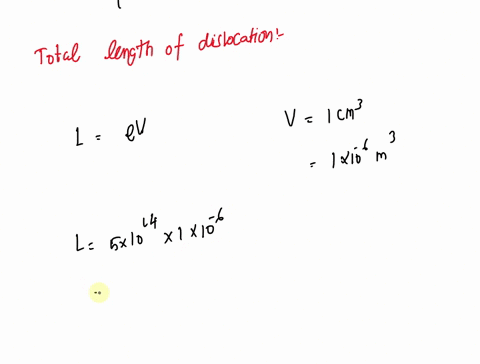 Total length of dislocation:-
L = ρV
V = 1 cm³
= 1×10⁻⁶ m³
L = 5×10¹⁴ × 1 × 10⁻⁶